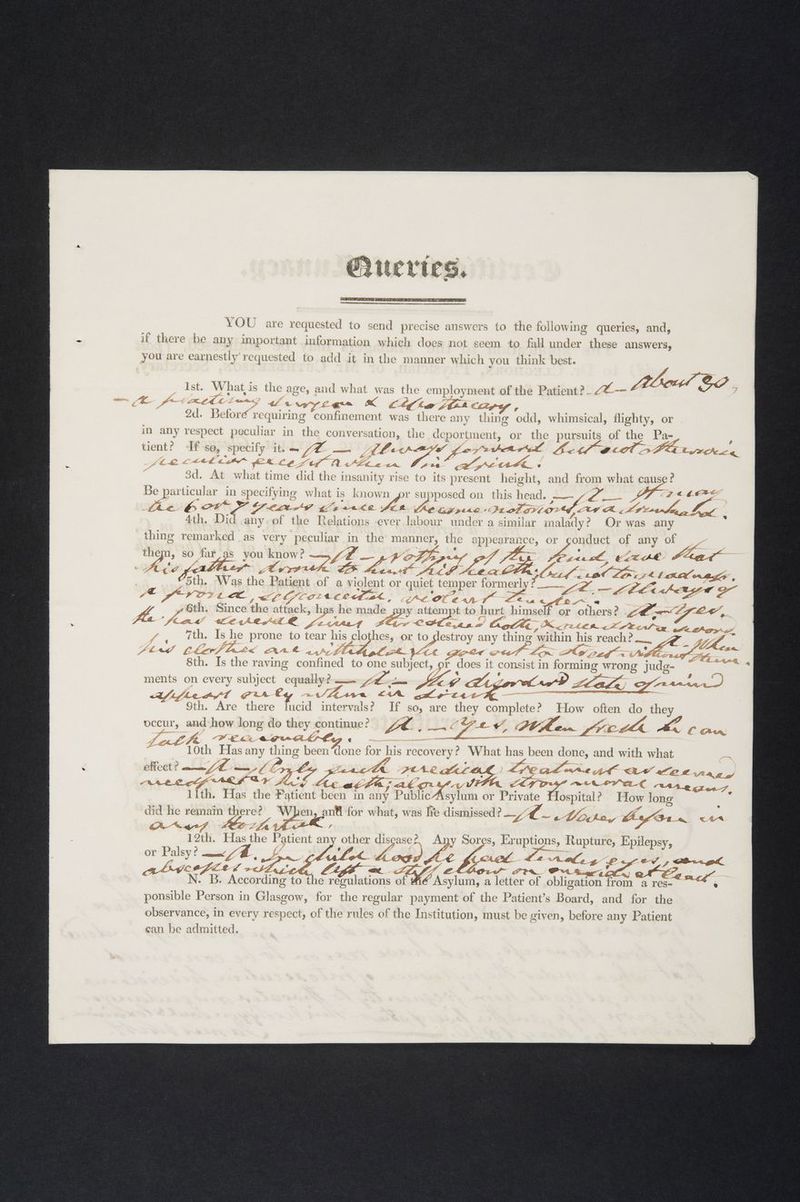 Queries.
YOU are requested to send precise answers to the following queries, and,
if there be any important information which does not seem to fall under these answers,
you are earnestly requested to add it in the manner which you think best.
1st. What is the age, and what was the employment of the Patient? - A — About 30,
— a practising Surgeon & Apothecary.
2d. Before requiring confinement was there any thing odd, whimsical, flighty, or
in any respect peculiar in the conversation, the deportment, or the pursuits of the Pa-
tient? If so, specify it. - A — Always forward but not otherwise
peculiar except when in drink.
3d. At what time did the insanity rise to its present height, and from what cause?
Be particular in specifying what is known or supposed on this head. — A — It may
be 6 or 7 years since he became notorious as a drunkard.
4th. Did any of the Relations ever labour under a similar malady? Or was any
thing remarked as very peculiar in the manner, the appearance, or conduct of any of
them, so far as you know? — A — Nothing of the kind, save that
his father drank to hurt his health but not to madness.
5th. Was the Patient of a violent or quiet temper formerly? — A. — Always of
a proud, selfconceited, violent temper.
6th. Since the attack, has he made any attempt to hurt himself or others? A — Yes.
He has several times threatened both, & once drew a sword.
7th. Is he prone to tear his clothes, or to destroy any thing within his reach? — A. When
his clothes are withheld he goes out to street without them.
8th. Is the raving confined to one subject, or does it consist in forming wrong judg-
ments on every subject equally? — A. — His disordered state of mind
appears only when in drink
9th. Are there lucid intervals? If so, are they complete? How often do they
occur, and how long do they continue? A. — Yes, When fresh he can
talk reasonably.
10th Has any thing been done for his recovery? What has been done, and with what
effect? — A — Only such medical treatment as seemed
needful for his health; along with strong moral means.
11th. Has the Patient been in any Public Asylum or Private Hospital? How long
did he remain there? When, and for what, was he dismissed? — A — Never before in
any Hospital.
12th. Has the Patient any other disease? Any Sores, Eruptions, Rupture, Epilepsy,
or Palsy? — A. In child hood he had tender eyes, and
abscesses which left a stiff elbow on one side at least.
N. B. According to the regulations of the Asylum, a letter of obligation from a res-
ponsible Person in Glasgow, for the regular payment of the Patient's Board, and for the
observance, in every respect, of the rules of the Institution, must be given, before any Patient
can be admitted.